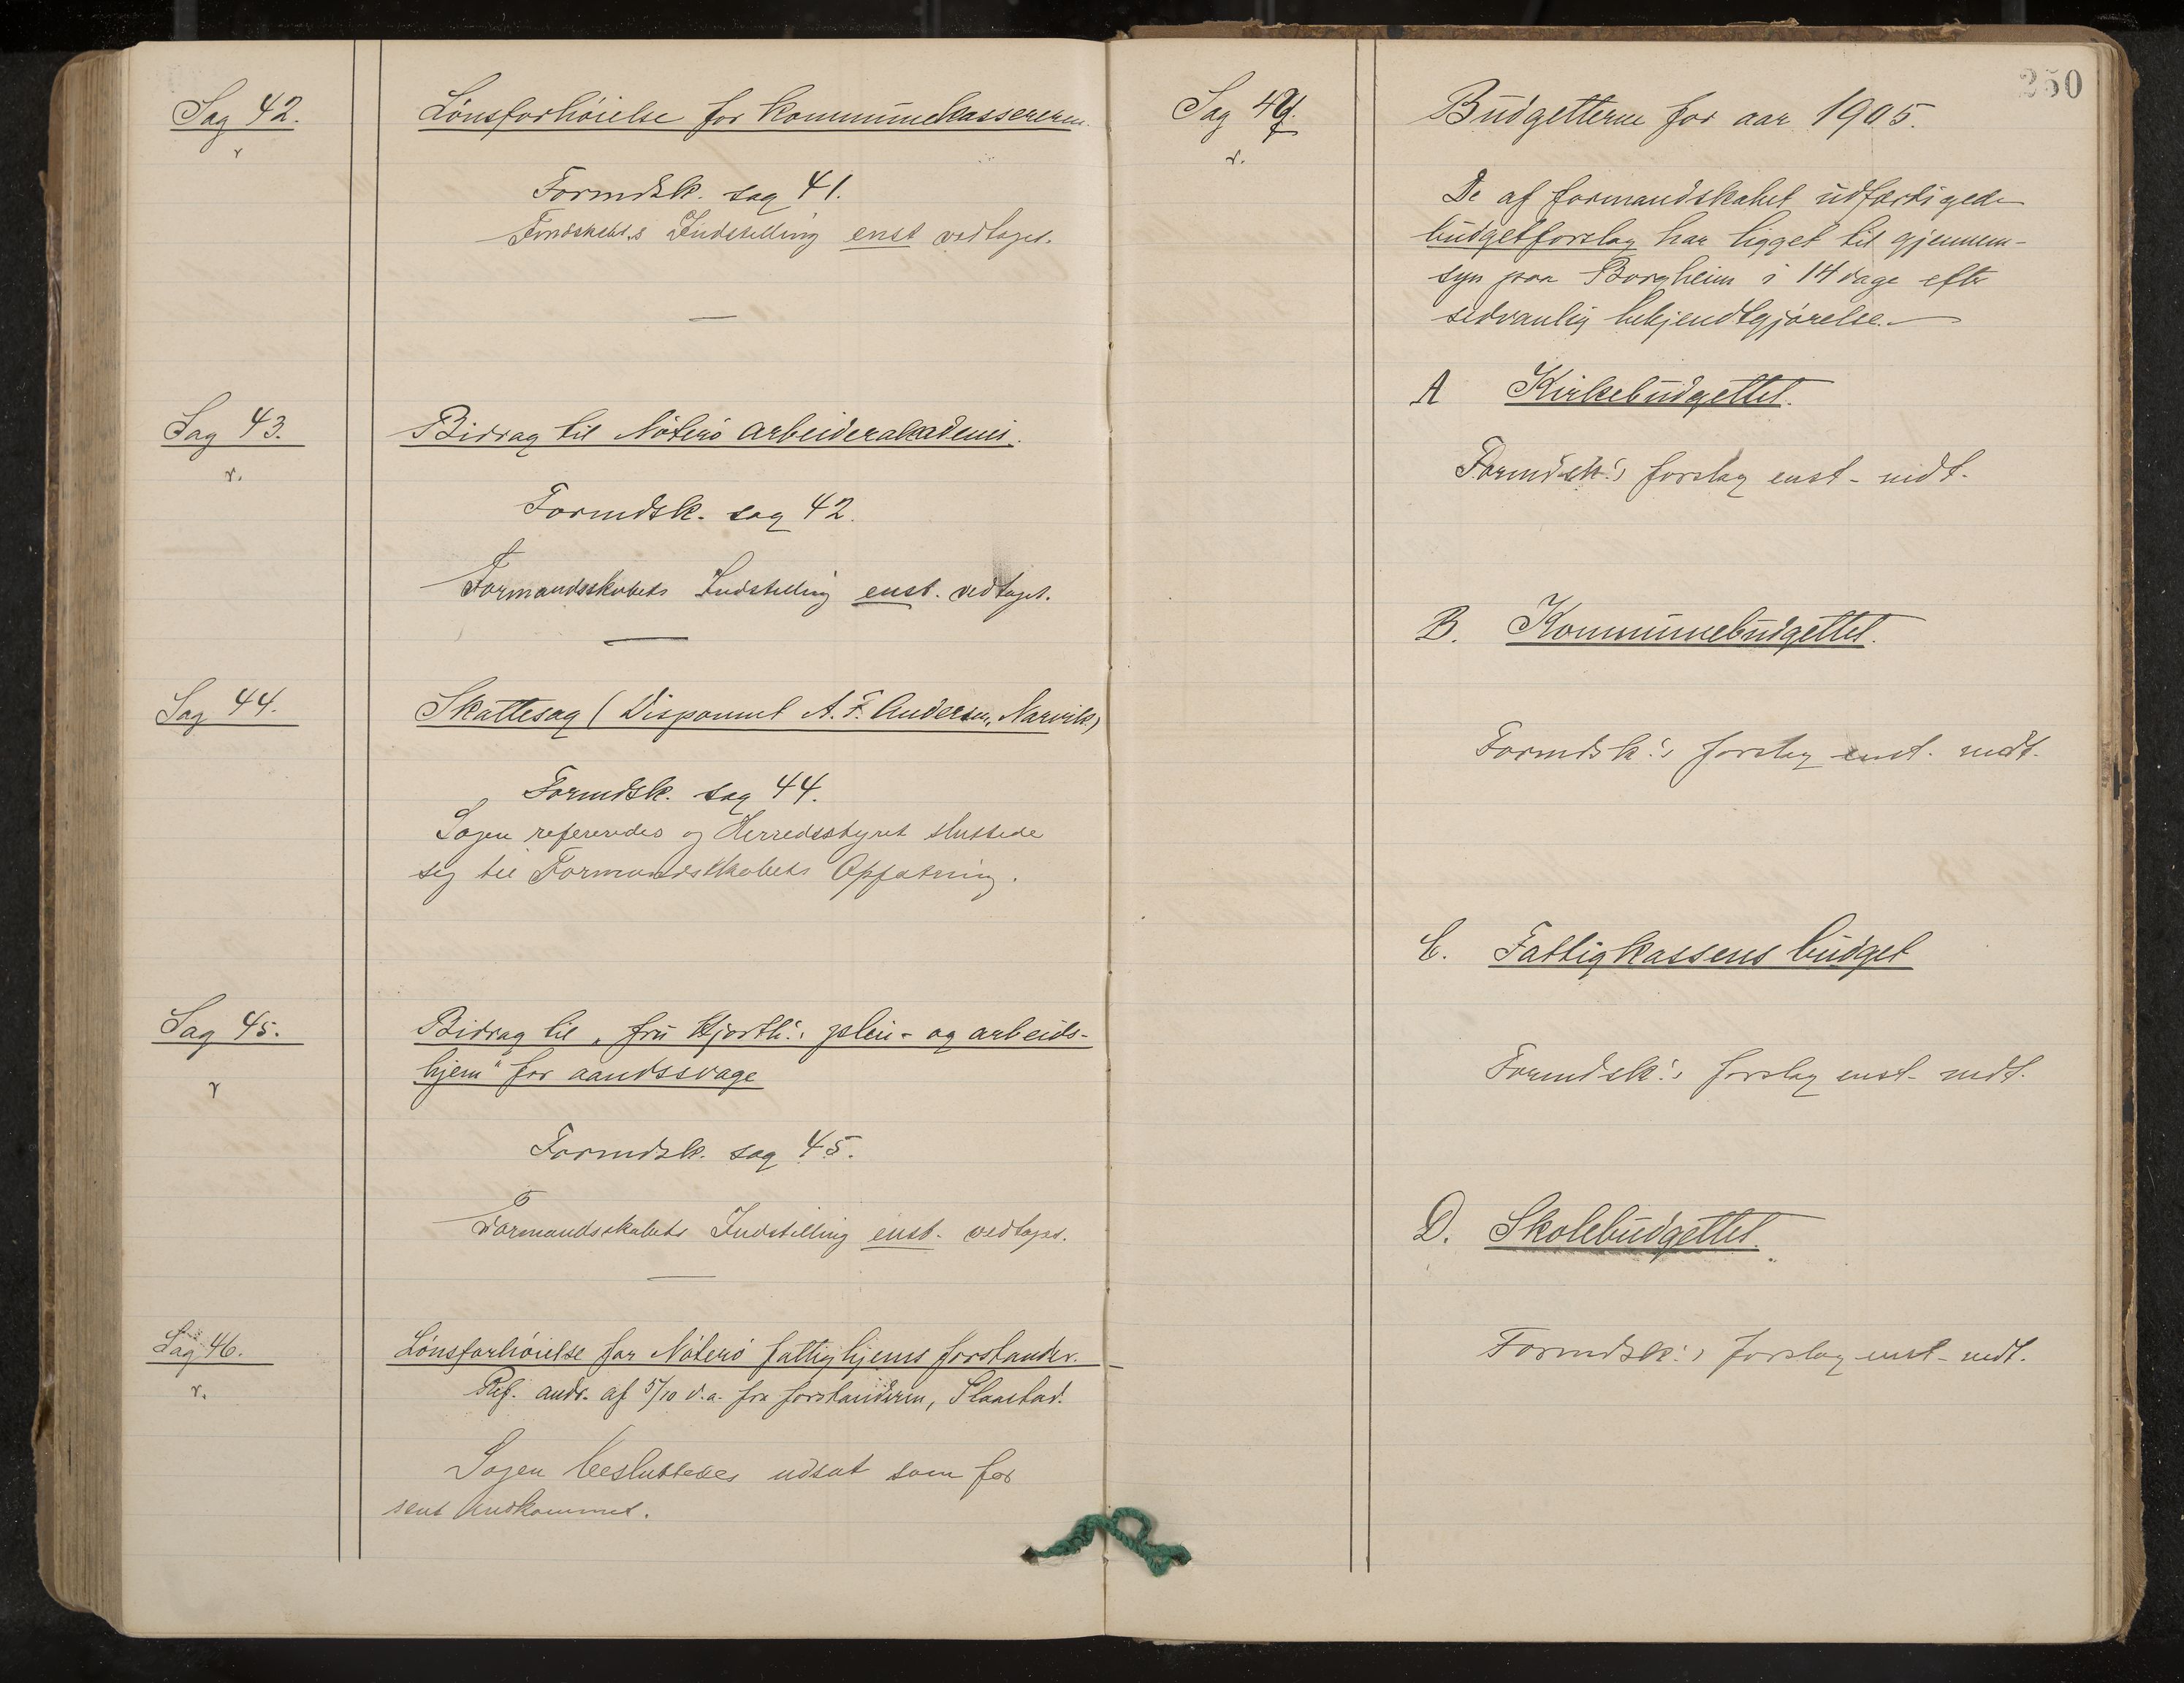 Sag 42.
r
Lönsforhöielse for Kommunekassereren.
Formdsk. sag 41.
Fmdskabts Indstilling enst vedtaget.
Sag 43.
r.
Bidrag til Nöterö arbeiderakademi.
Formdsk. sag 42.
Formandsskabets Indstilling enst. vedtaget.
Sag 44.
Skattesag (Disponent A. F. Andersen, Narvik)
Formdsk. sag 44.
Sagen refereredes og Herredsstyret sluttede
sig til Formandsskabets Opfatning.
Sag 45.
r
Bidrag til „fru Hjorth's pleie- og arbeids-
hjem" for aandssvage
Formdsk. sag 45.
Formandsskabets Indstilling enst. vedtaget.
Sag 46.
r.
Lönsforhöielse for Nöterö fattighjems forstander.
Ref. andr. af 5/10 d.a. fra forstanderen, Slaastad.
Sagen besluttedes udsat som for
sent indkommet.
250
Sag 47.
r.
Budgetterne for aar 1905.
De af formandskabet udfærtigede
budgetforslag har ligget til gjennem-
syn paa Borgheim i 14 dage efter
sedvanlig bekjendtgjörelse.
A Kirkebudgettet.
Formdsk's forslag enst. vedt.
B. Kommunebudgettet.
Formdsk's forslag enst. vedt.
C. Fattigkassens budget
Formdsk's forslag enst. vedt.
D. Skolebudgettet.
Formdsk's forslag enst. vedt.